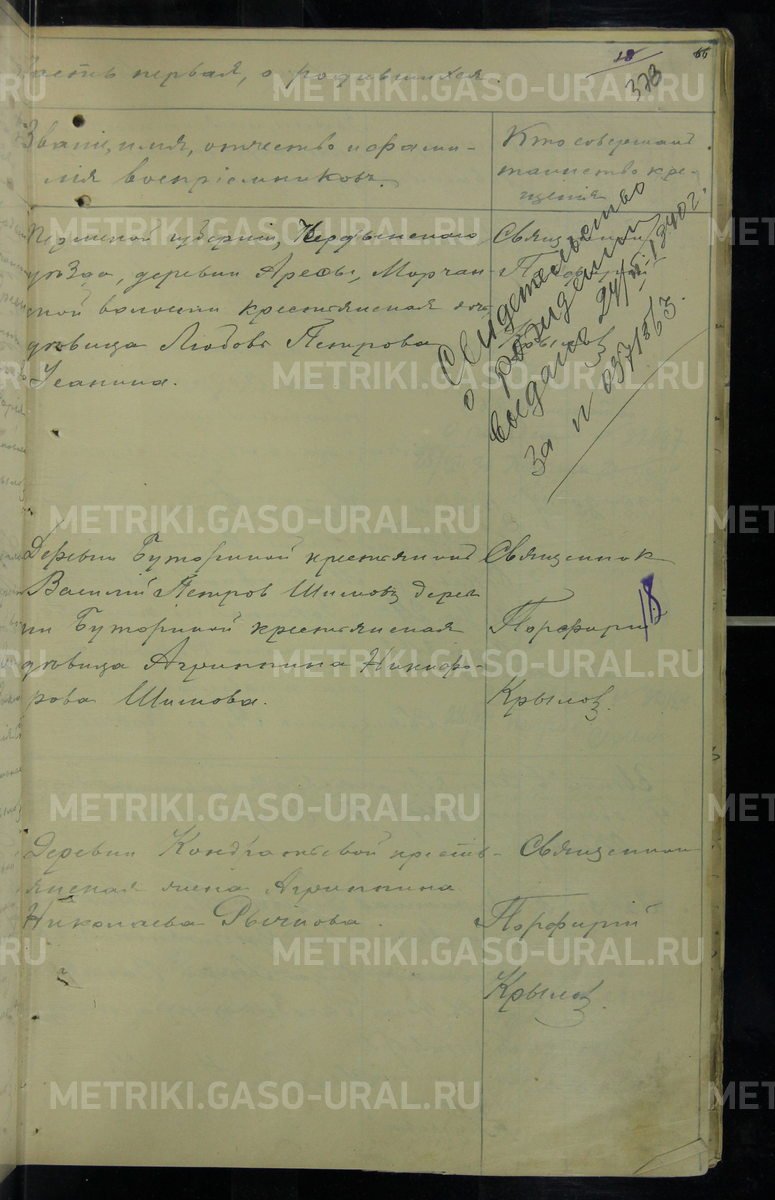 18 66
373
Часть первая, о родившихся.
Званіе, имя, отчество и фами-
лія воспріемниковъ.
Кто совершалъ
таинство кре-
щенія
Пермской губерніи, Чердынскаго
уѣзда, деревни Арефы, Морчан-
ской волости крестьянская
дѣвица Любовь Петрова
Ивашина.
Священникъ
Свидетельство
о рождении
выдано 24/VI-1940г.
За № 0371363.
Деревни Буториной крестьянинъ
Василій Петров Шишовъ дерев
ни Буториной крестьянская
дѣвица Агриппина Никифо-
рова Шишова.
Священник
18
Порфирій
Крылов.
Деревни Кондратьевой кресть-
янская жена Агриппина
Николаева Рычкова.
Священник
Порфирій
Крылов.
METRIKI.GASO-URAL.RU